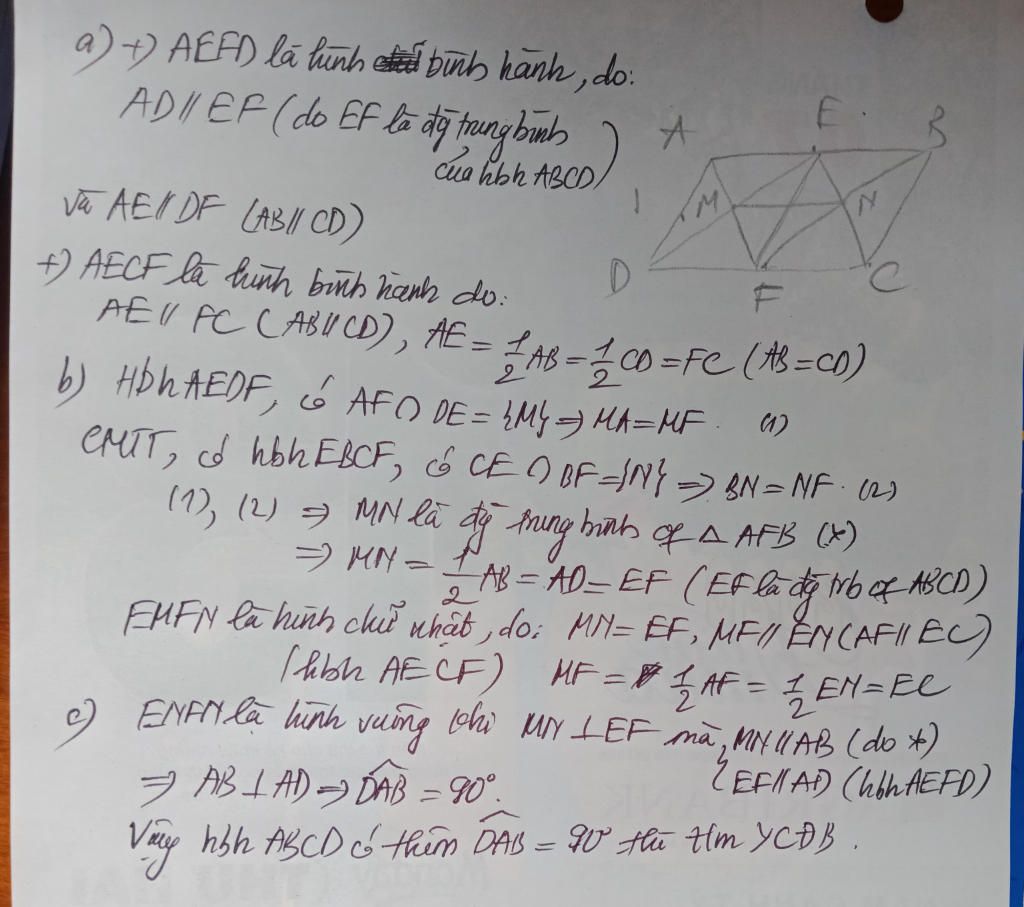 a) +) AEFD là hình bình hành, do:
AD // EF (do EF là đg trung bình
của hbh ABCD)
và AE // DF (AB // CD)
A E B
I M N
D F C
+) AECF là hình bình hành do:
AE // FC (AB // CD), AE = 1/2 AB = 1/2 CD = FC (AB = CD)
b) Hbh AEDF, có AF ∩ DE = {M} => MA = MF. (1)
CMTT, có hbh EBCF, có CE ∩ BF = {N} => BN = NF. (2)
(1), (2) => MN là đg trung bình of △ AFB (*)
=> MN = 1/2 AB = AD = EF (EF là đg trb of ABCD)
EMFN là hình chữ nhật, do: MN = EF, MF // EN (AF // EC)
(hbh AECF) MF = 1/2 AF = 1/2 EN = EC
c) ENFN là hình vuông khi MN ⊥ EF mà { MN // AB (do *)
EF // AD (hbh AEFD)
=> AB ⊥ AD => DAB = 90°.
Vậy hbh ABCD có thêm DAB = 90° thì t/m YCĐB.